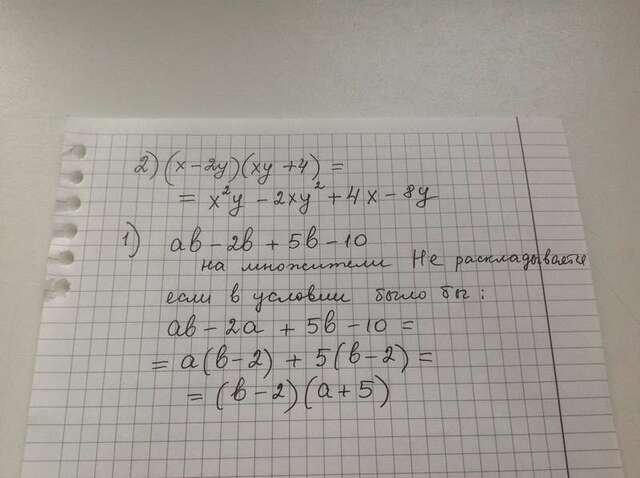 2) (x-2y)(xy+4) =
= x²y - 2xy² + 4x - 8y
1) ав - 2в + 5в - 10
на множители Не раскладывается
если в условии было бы:
ав - 2а + 5в - 10 =
= а(в-2) + 5(в-2) =
= (в-2)(а+5)